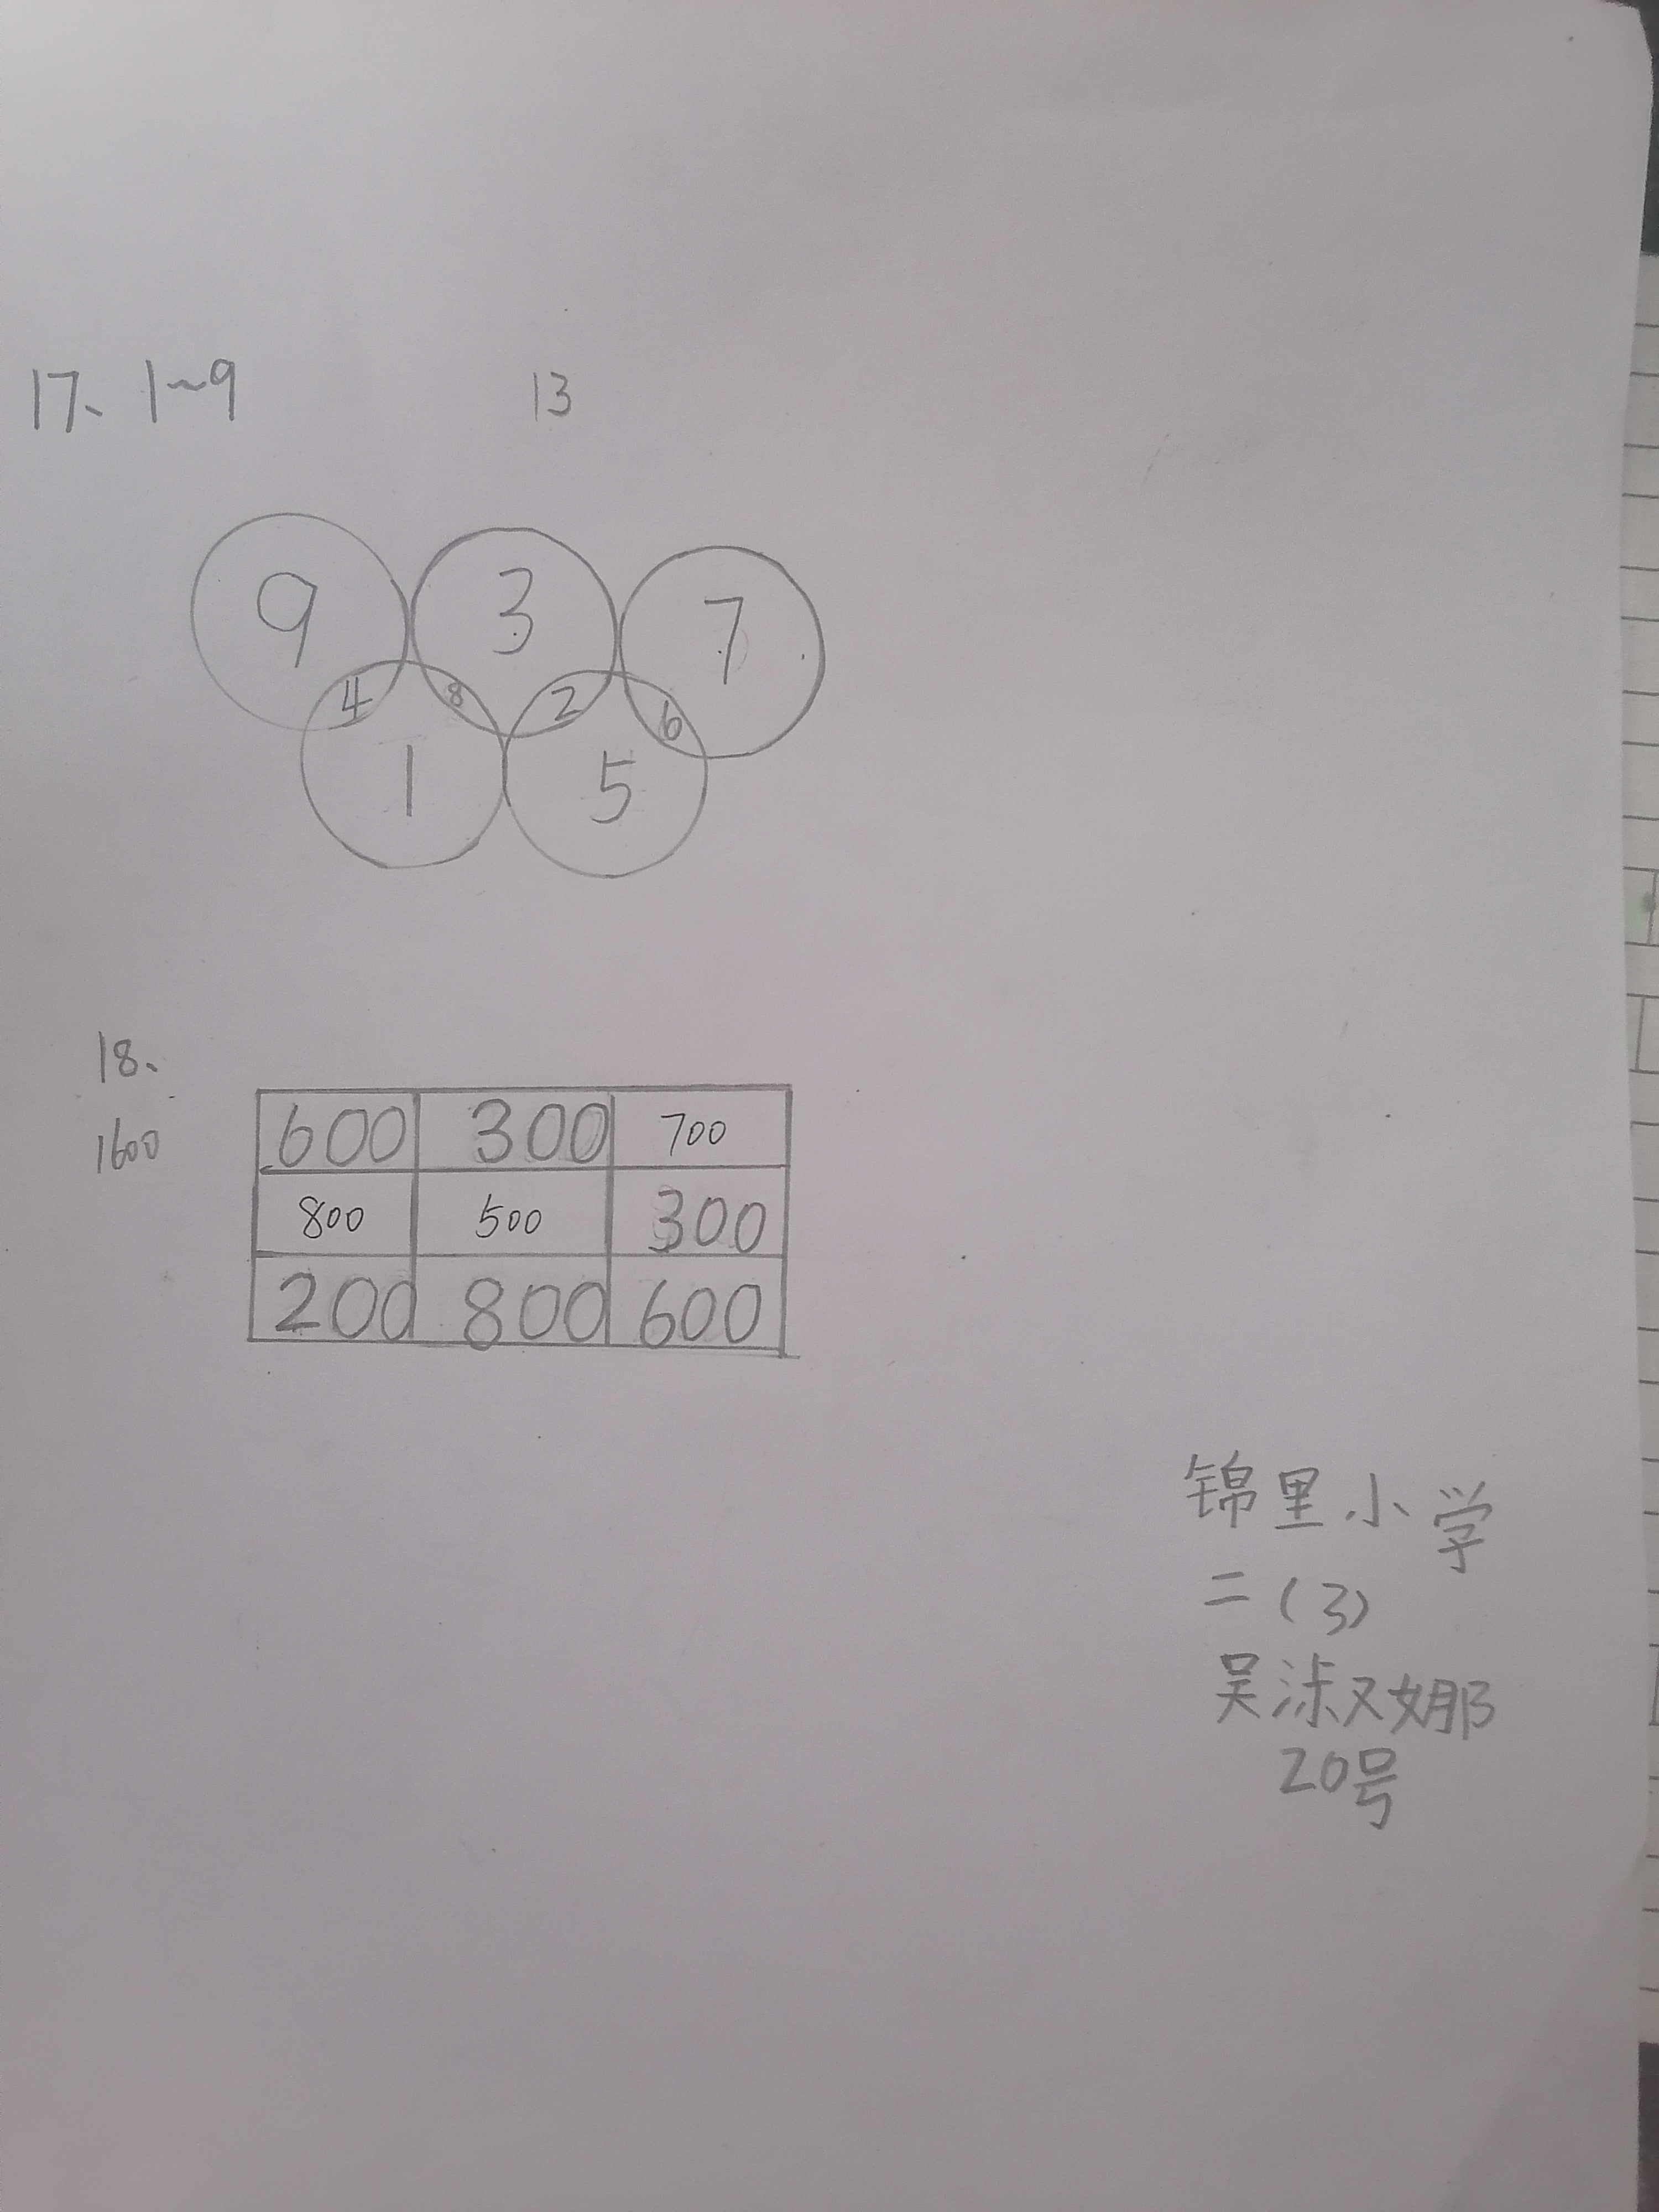 17、1~9 13
9 3 7
4 8 2 6
1 5
18、
1600
600 300 700
800 500 300
200 800 600
锦里小学
二(3)
吴沭又娜
20号